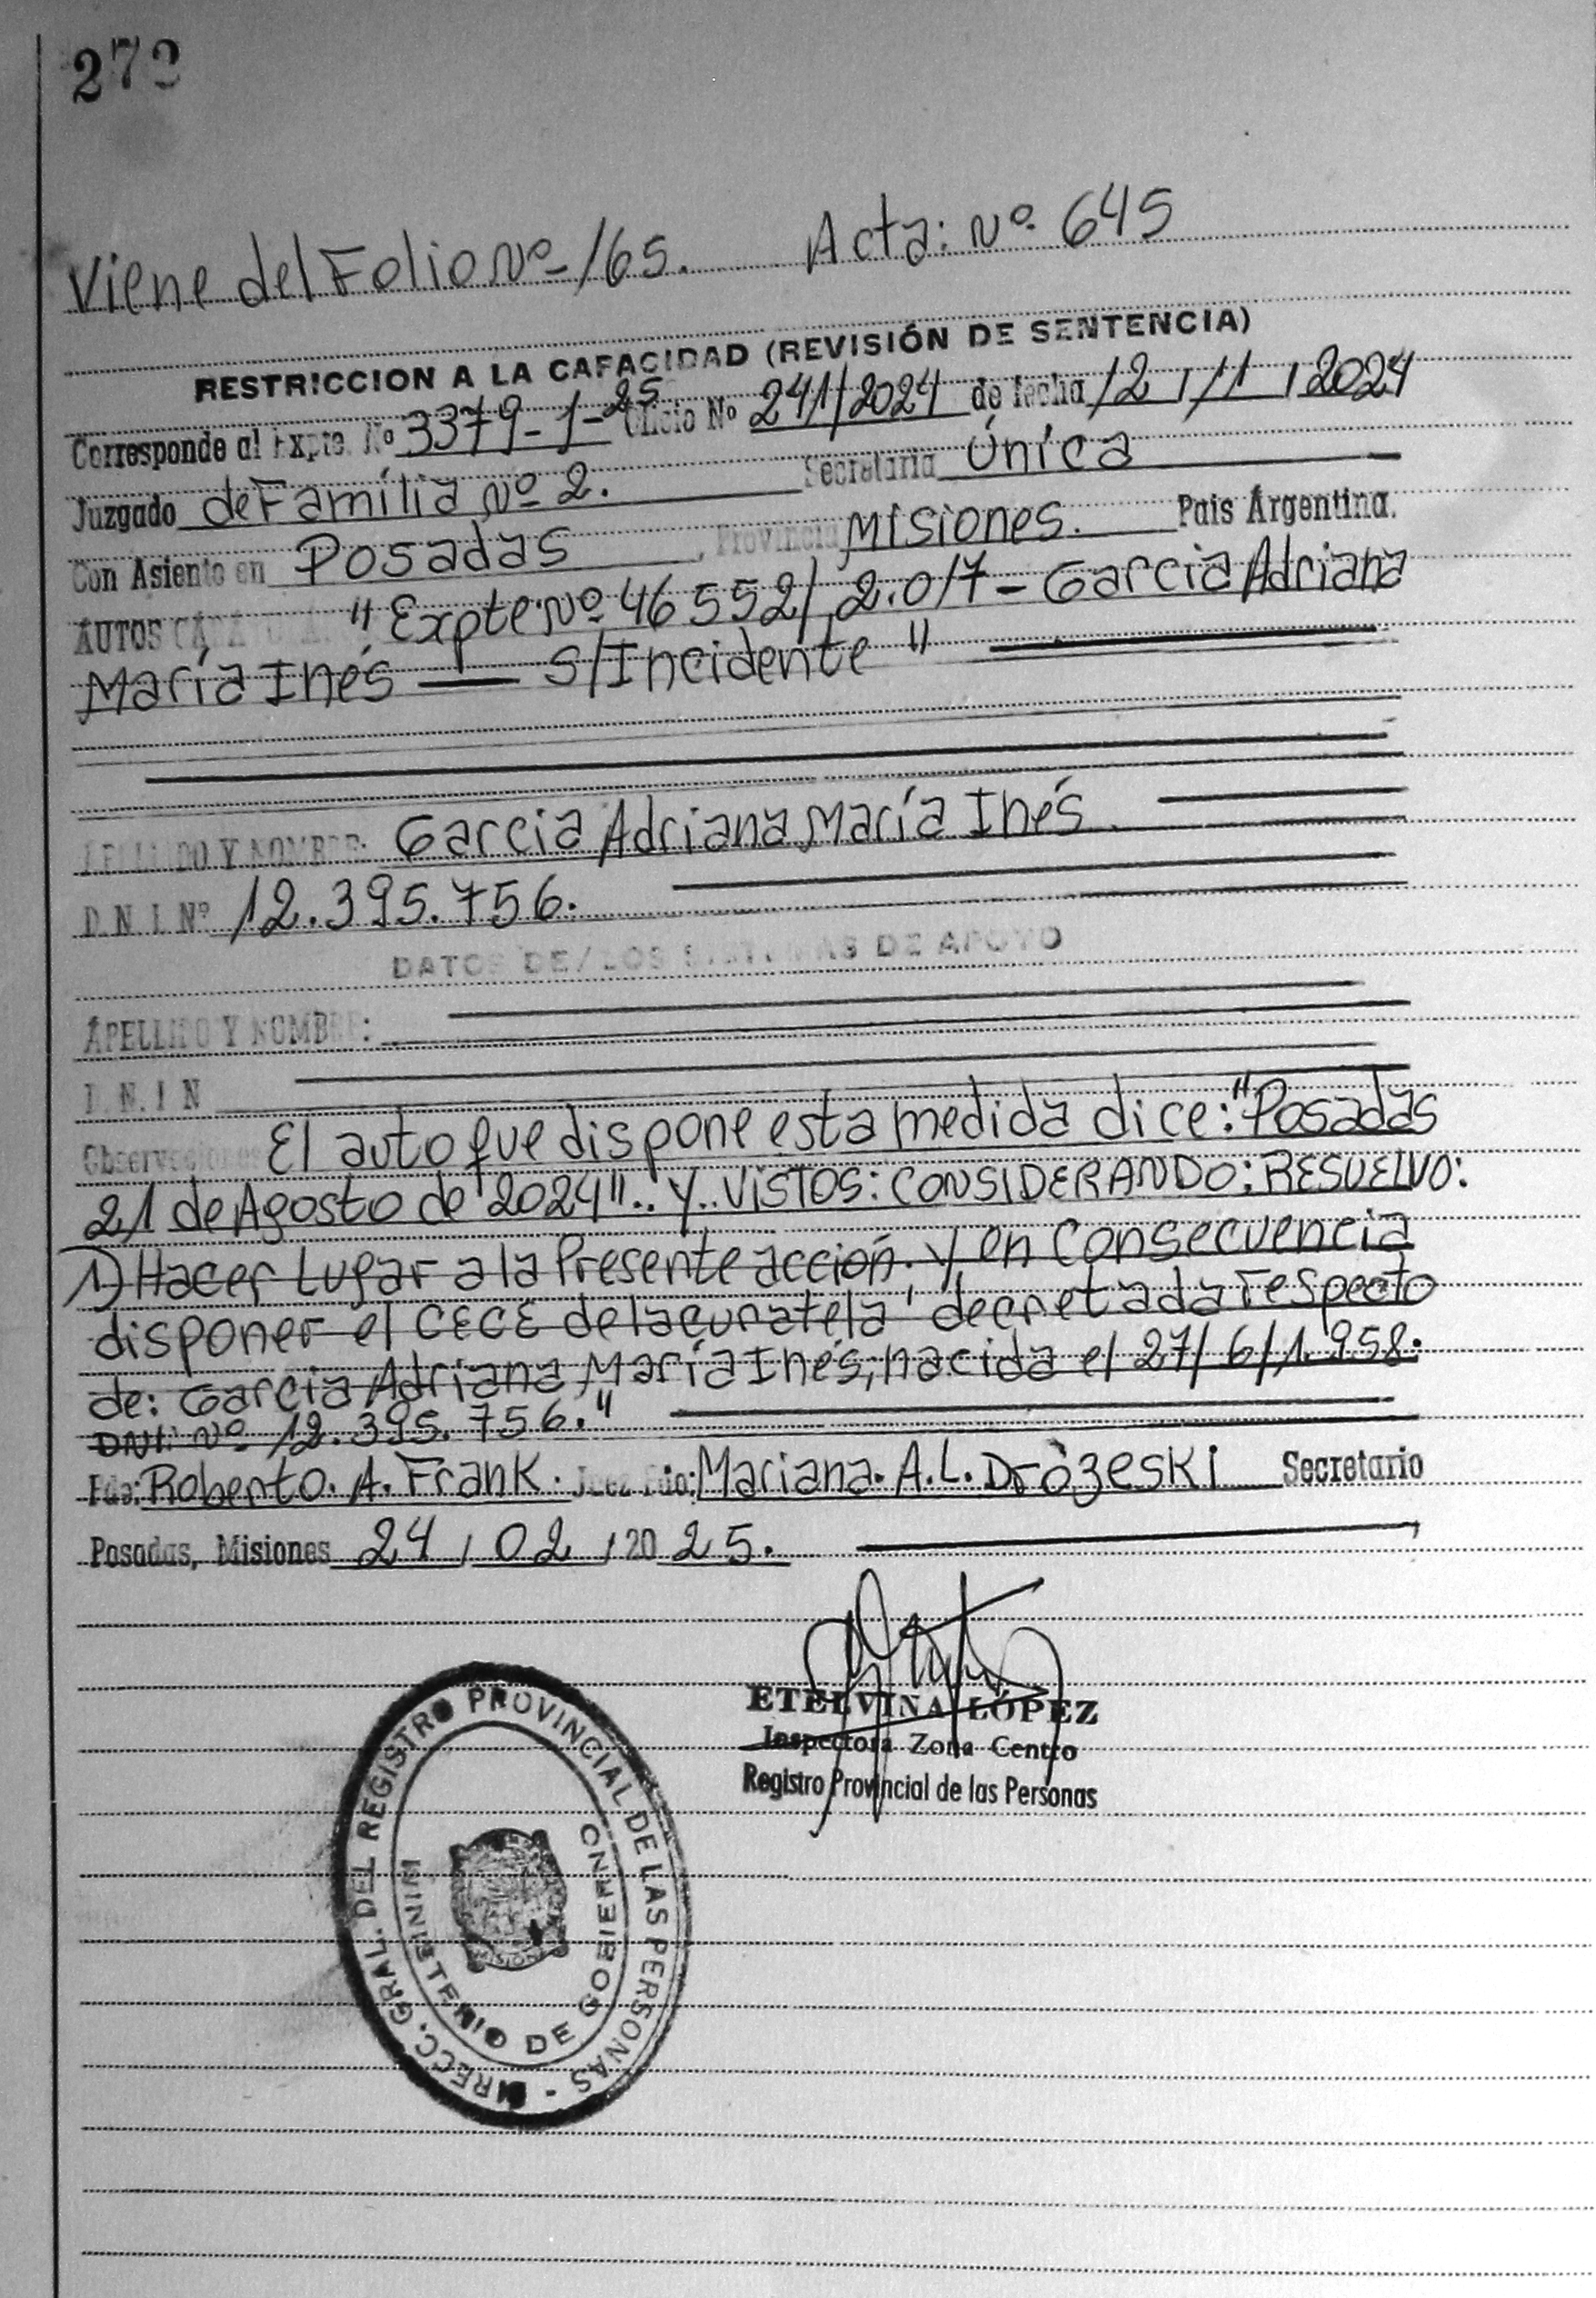 272
Viene del Folio Nº 165. Acta: Nº 645
RESTRICCION A LA CAPACIDAD (REVISIÓN DE SENTENCIA)
Corresponde al Expte. Nº 3379-1-25 Oficio Nº 241/2024 de fecha 12/11/2024
Juzgado de Família Nº 2. Secretaria Única
Con Asiento en Posadas, Provincia Misiones. Pais Argentina.
AUTOS "Expte Nº 46552/2.017 - Garcia Adriana
María Inés — S/Incidente"
APELLIDO Y NOMBRE: Garcia Adriana María Inés.
D.N.I. Nº 12.395.756.
DATOS DE/LOS SISTEMAS DE APOYO
APELLIDO Y NOMBRE:
D.N.I N
Observaciones El auto que dispone esta medida dice: "Posadas
21 de Agosto de 2024".. Y.. VISTOS: CONSIDERANDO: RESUELVO:
1) Hacer Lugar a la Presente acción. Y en Consecuencia
disponer el CECE de la curatela decretada respecto
de: Garcia Adriana María Inés, nacida el 27/6/1.958.
DNI: Nº 12.395.756."
Fdo: Roberto. A. Frank. Juez Fdo: Mariana. A.L. Drózeski Secretario
Posadas, Misiones 24/02/2025.
ETELVINA LÓPEZ
Inspectora Zona Centro
Registro Provincial de las Personas
DIRECC. GRAL. DEL REGISTRO PROVINCIAL DE LAS PERSONAS -
MINISTERIO DE GOBIERNO